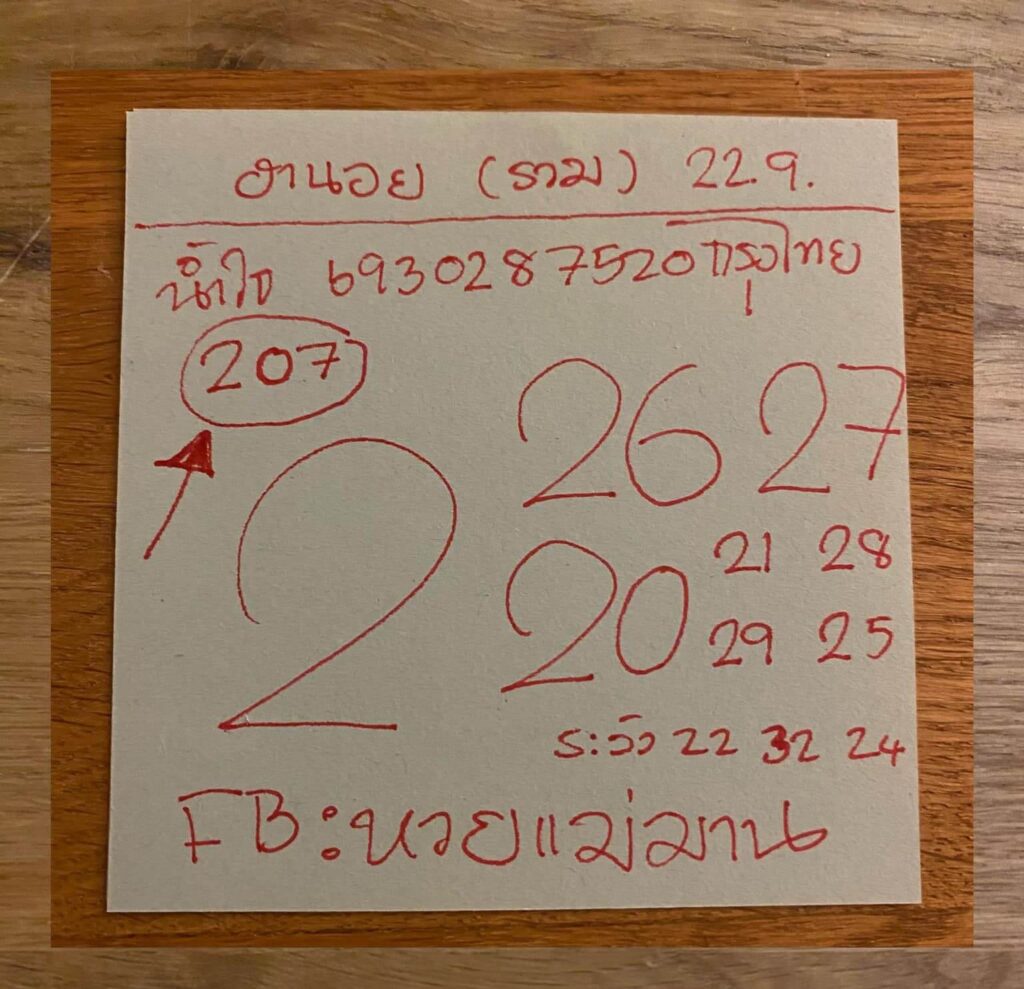 ฮานอย (รวม) 22.9.
น้ำใจ 6930287520 กรุงไทย
207
26 27
2
20 21 28
29 25
ระวัง 22 32 24
FB:หวยแม่มาน